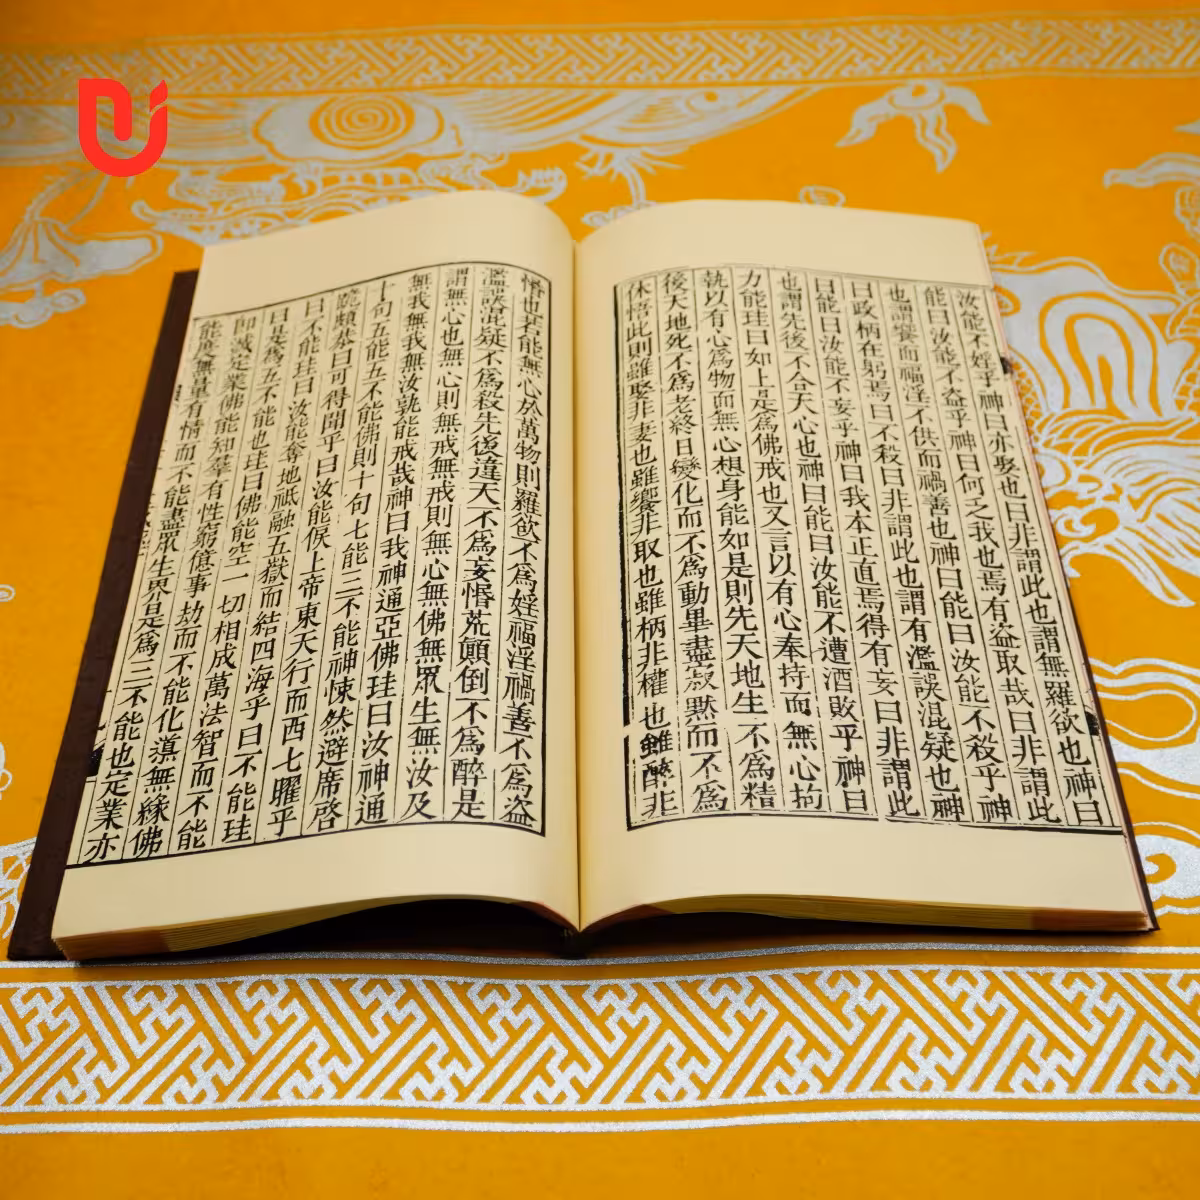 汝能不婬乎神曰亦娶也曰非謂此也謂無羅欲也神曰
能曰汝能不盗乎神曰何乏我也焉有盗取哉曰非謂此
也謂饗而福淫不供而禍善也神曰能曰汝能不殺乎神
曰政柄在躬焉曰不殺曰非謂此也謂有濫誤混疑也神
曰能曰汝能不妄乎神曰我本正直焉得有妄曰非謂此
也謂先後不合天心也神曰能曰汝能不遭酒敗乎神曰
力能珪曰如上是爲佛戒也又言以有心奉持而無心拘
執以有心爲物而無心想身能如是則先天地生不爲精
後天地死不爲老終日變化而不爲動畢盡寂默而不爲
休悟此則雖娶非妻也雖饗非取也雖柄非權也雖醉非
惛也若能無心於萬物則羅欲不爲婬福淫禍善不爲盗
濫誤混疑不爲殺先後違天不爲妄惛荒顛倒不爲醉是
謂無心也無心則無戒無戒則無心無佛無眾生無汝及
無我無我無汝孰能戒哉神曰我神通亞佛珪曰汝神通
十句五能五不能佛則十句七能三不能神悚然避席啓
頗恭曰可得聞乎曰汝能上帝東天行而西七曜乎
曰不能珪曰汝能奪地祇融五嶽而結四海乎曰不能珪
曰是爲五不能也珪曰佛能空一切相成萬法智而不能
即滅定業佛能知羣有性窮億事劫而不能化導無緣佛
能度無量有情而不能盡眾生界是爲三不能也定業亦